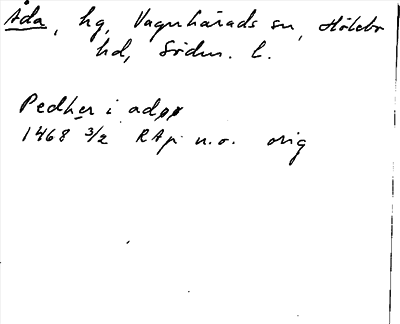 Åda, hg, Vagnhärads sn, Hölebo
hd, Södm. l.
Pedher i adøø
1468 3/2 RAp u.o. orig